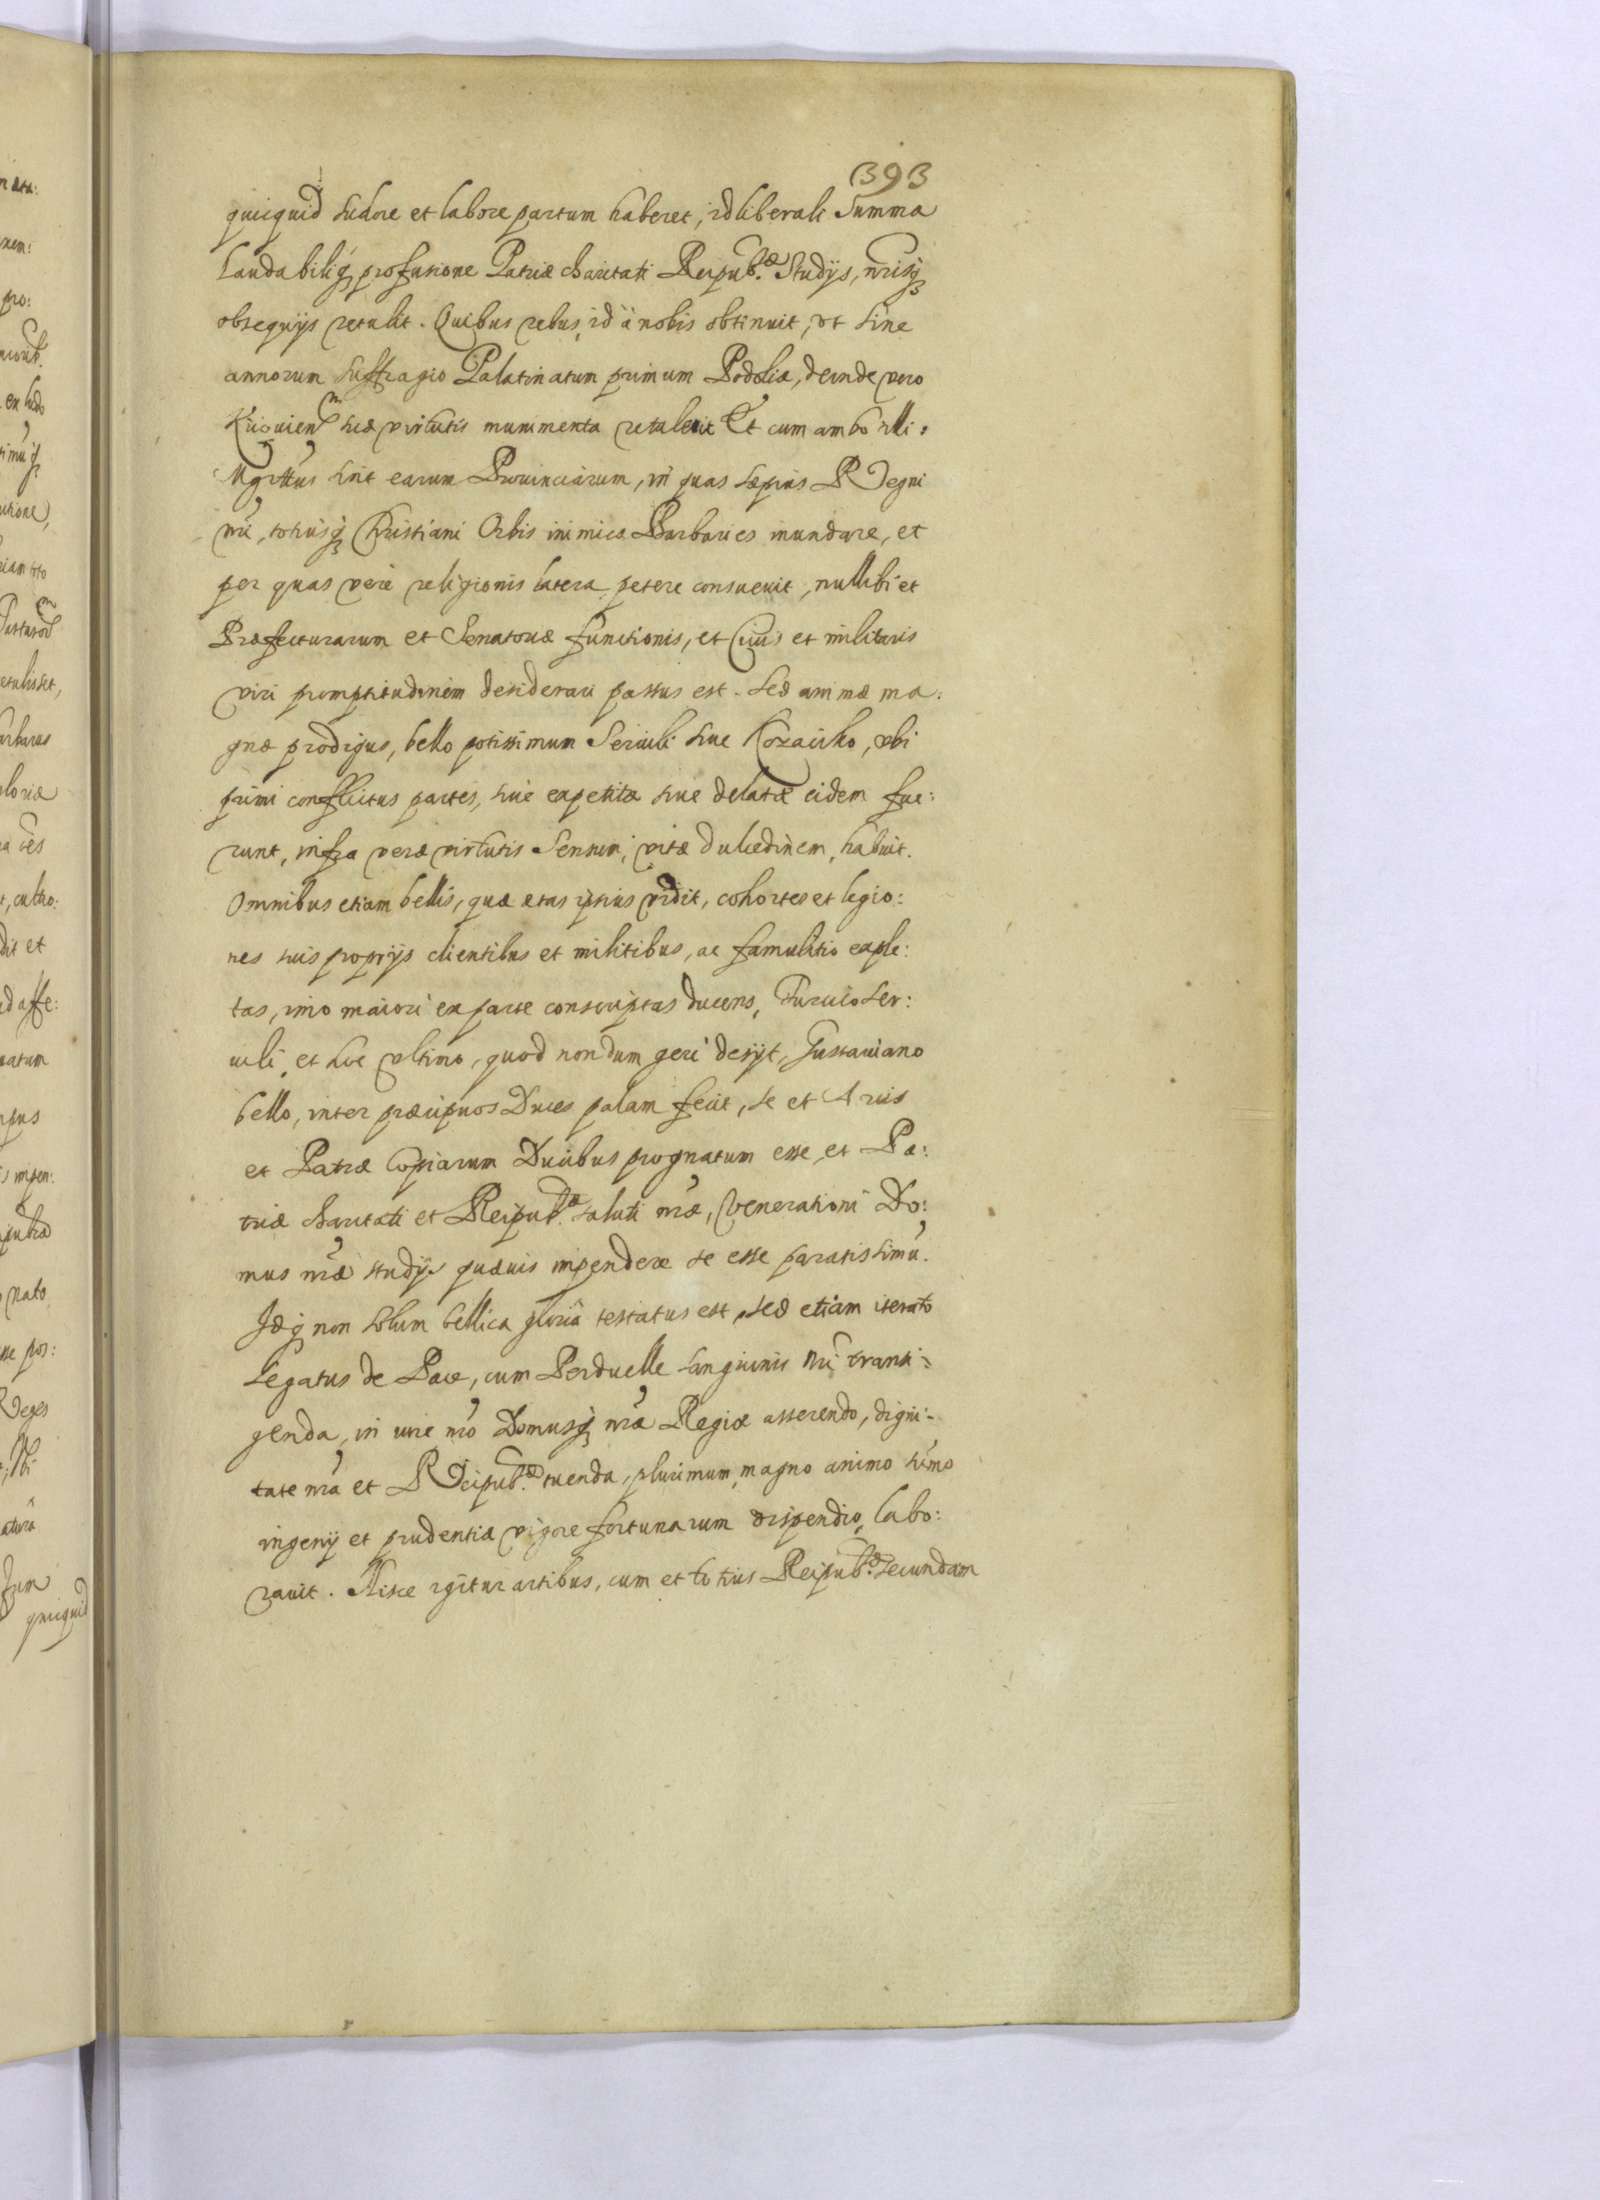 393
quicquid sudore et labore partum haberet, id liberali summa
laudabiliq profusione Patriæ charitati Reipub.æ studijs, nrisq
obsequijs retulit. Quibus rebus id à nobis obtinuit, vt sine
annorum suffragio Palatinatum primum Podoliæ, deinde vero
Kijouien suæ virtutis munimenta retulerit Et cum ambo illi
sint earum Prouinciarum, in quas sæpius Regni
nri, totiusq Christiani Orbis inimica Barbaries inundare, et
per quas veri religionis latera petere consueuit, nullibi et
Præfecturarum et Senatoriæ functionis, et Ciuis et militaris
viri promptitudinem desiderari passus est. Sed animæ ma:
gnæ prodigus, bello potissimum Seruili siue Kozacisko, vbi
primi conflictus partes, siue expetitæ siue delatæ eidem fue:
runt, infra veræ virtutis sensum, vitæ dulcedinem, habuit.
Omnibus etiam bellis, quæ ætas ipsius vidit, cohortes et legio:
nes suis proprijs clientibus et militibus, ac famulitio exple:
tas, imo maiori ex parte conscriptas ducens, Turcico Ser:
uili et hoc vltimo, quod nondum geri desijt, Gustauiano
bello, inter præcipuos Duces palam fecit, se et Auis
et Patriæ Copiarum Ducibus prognatum esse et Pa:
triæ charitati et Reipub.æ saluti nræ, Venerationi Do:
mus nræ studijs quæuis impendere se esse paratissimũ.
Idq non solum bellica gloriâ testatus est, sed etiam iterato
Legatus de Pace, cum Perduelle sanguinis nri transi:
genda, in iure nro Domusq nræ Regiæ asserendo, digni:
tate nra et Reipub.æ tuenda, plurimum magno animo sũmo
ingenij et prudentiæ vigore fortunarum dispendio, labo:
rauit. Hisce igitur artibus, cum et totius Reipub.æ secundam